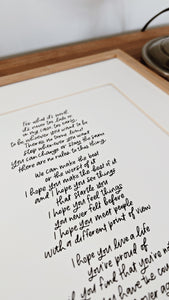 For what it's worth...
it's never too late or
in my case, too early,
to be whoever you want to be.
There's no time limit
stop whenever you want
you can change or stay the same
there are no rules to this thing.
We can make the best
or the worst of it
I hope you make the best of it
and I hope you see things
that startle you
I hope you feel things
you never felt before
I hope you meet people
with a different point of view
I hope you live a life
you're proud of
you find that you're not
have the cou
over ag